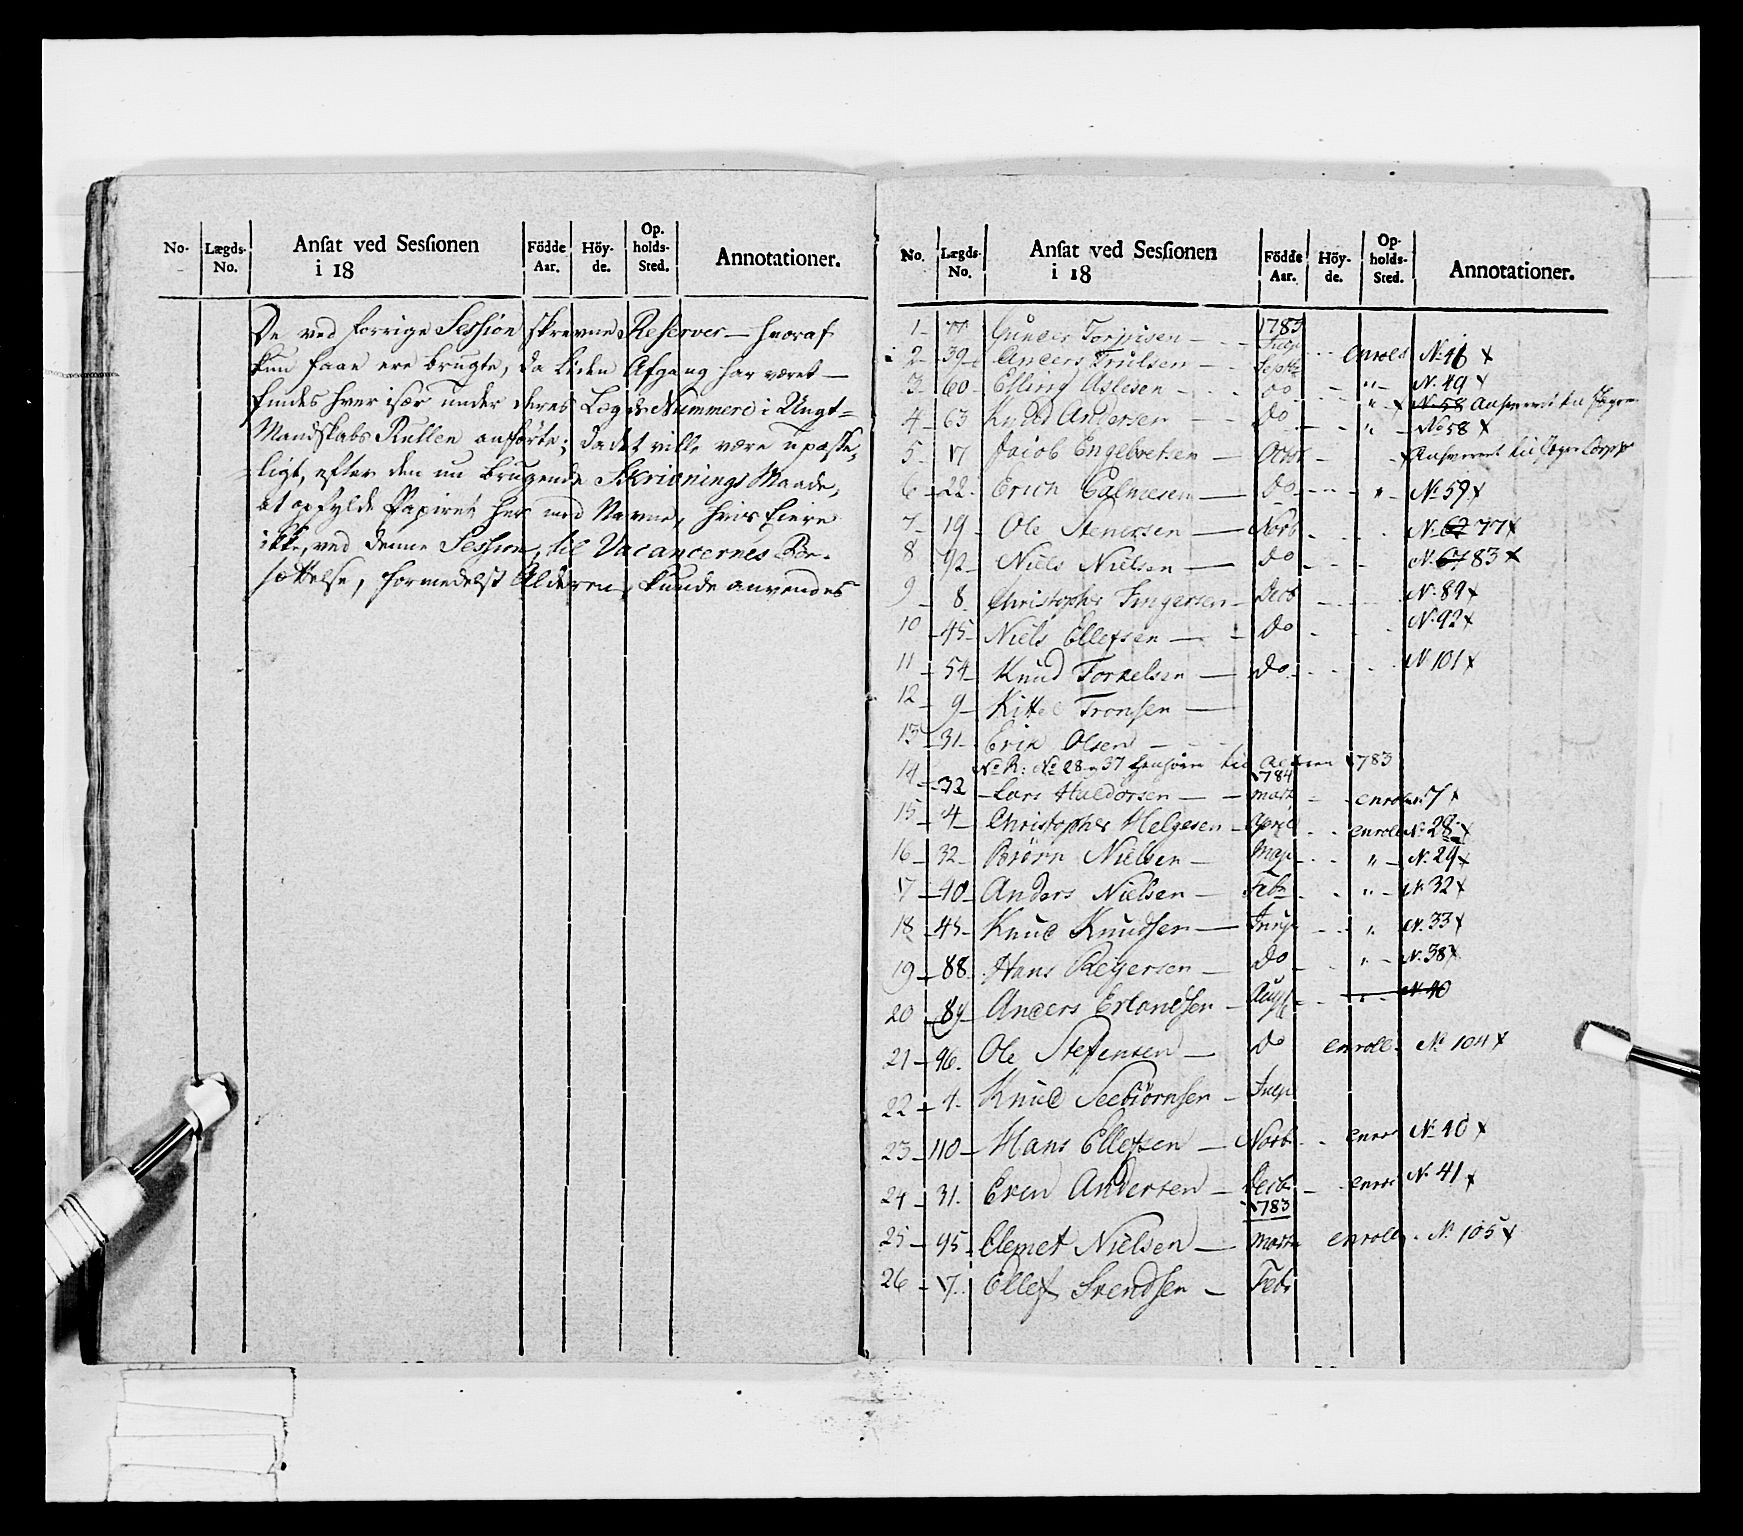 No. Lægds- No. Ansat ved Sessionen i 18 Födde Aar. Höy- de. Op- holds- Sted. Annotationer.
De ved forrige Session skrevne Reserver — hvoraf
kun faae ere brugte, da liden Afgang har været —
findes hver især under deres Lægds Nummere i Ungt-
Mandskabs Rullen anførte; da det ville være upasse-
ligt, efter den nu brugende Skrivnings Maade,
at opfylde Papiret her med Navne, hvis fleere
ikke, ved denne Session, til Vacancernes Be-
sættelse, formedelst Alderen, kunde anvendes
No. Lægds- No. Ansat ved Sessionen i 18 Födde Aar. Höy- de. Op- holds- Sted. Annotationer.
1783
1 — Gunder Torjusen —
2 — 39 Anders Trulsen — Septbr enroll No 46 x
3 — 60 Elling Aslesen — do " N. 49 x
4 — 63 Andersen — Do " No 58 x
5 — 17 Jacob Engelbretsen — Octbr
6 — 22 Erich — Do " No 59 x
7 — 19 Ole Stenersen — Novb N. 77 x
8 92 Niels Nielsen — Do N. 83 x
9 — 8 Christopher Ingersen — Decb N. 89 x
10 — 45 — Niels Ellefsen — Do N. 92 x
11 — 54 — Knud Torkelsen — Do N 101 x
12 — 9 — Kittel Tronsen —
13 — 31 — Erik Olsen —
1784
14 — 32 — Lars Haldorsen — Marts enroll 7 x
15 — 4 — Christopher Helgesen — April enroll N. 28 x
16 — 32 — Biörn Nielsen — May " N. 29 x
17 — 40 Anders Nielsen — Febr " N. 32 x
18 — 45 — Knud Knudsen — Juny " N. 33 x
19 — 88 Hans Regersen — Do " N. 38 x
20 — 89 — Anders Erlandsen — Aug " N. 40
21 — 96. Ole Stefensen — Do enroll. No 104 x
22 — 4. Knud Seebiörnsen — July
23 — 110 — Hans Ellefsen — Novb enro No 40 x
24 — 31. Even Andersen — Decb enro No 41 x
1783
25 — 95 — Clemet Nielsen — Marts enroll. No 105 x
26 — 17. Ellef Svendsen — Febr